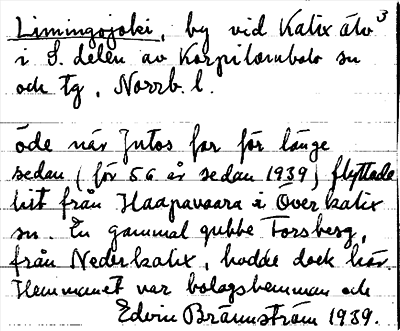 Limingojoki, by vid Kalix älv 3
i S. delen av Korpilombolo sn
och tg, Norrb. l.
öde när Jutos far för länge
sedan (för 56 år sedan 1939) flyttade
hit från Haapavaara i Överkalix
sn. En gammal gubbe Forsberg,
från Nederkalix, bodde dock här.
Hemmanet var bolagshemman och
Edvin Brännström 1939.